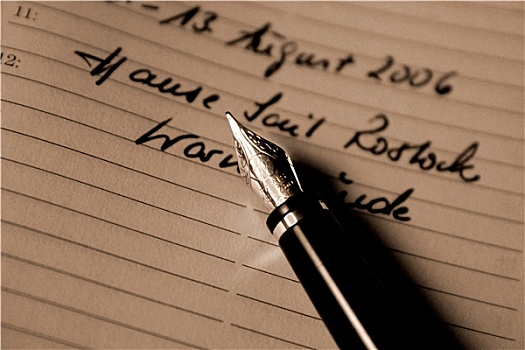 11: - 13 August 2006
12: Hanse Sail Rostock
Warn nde